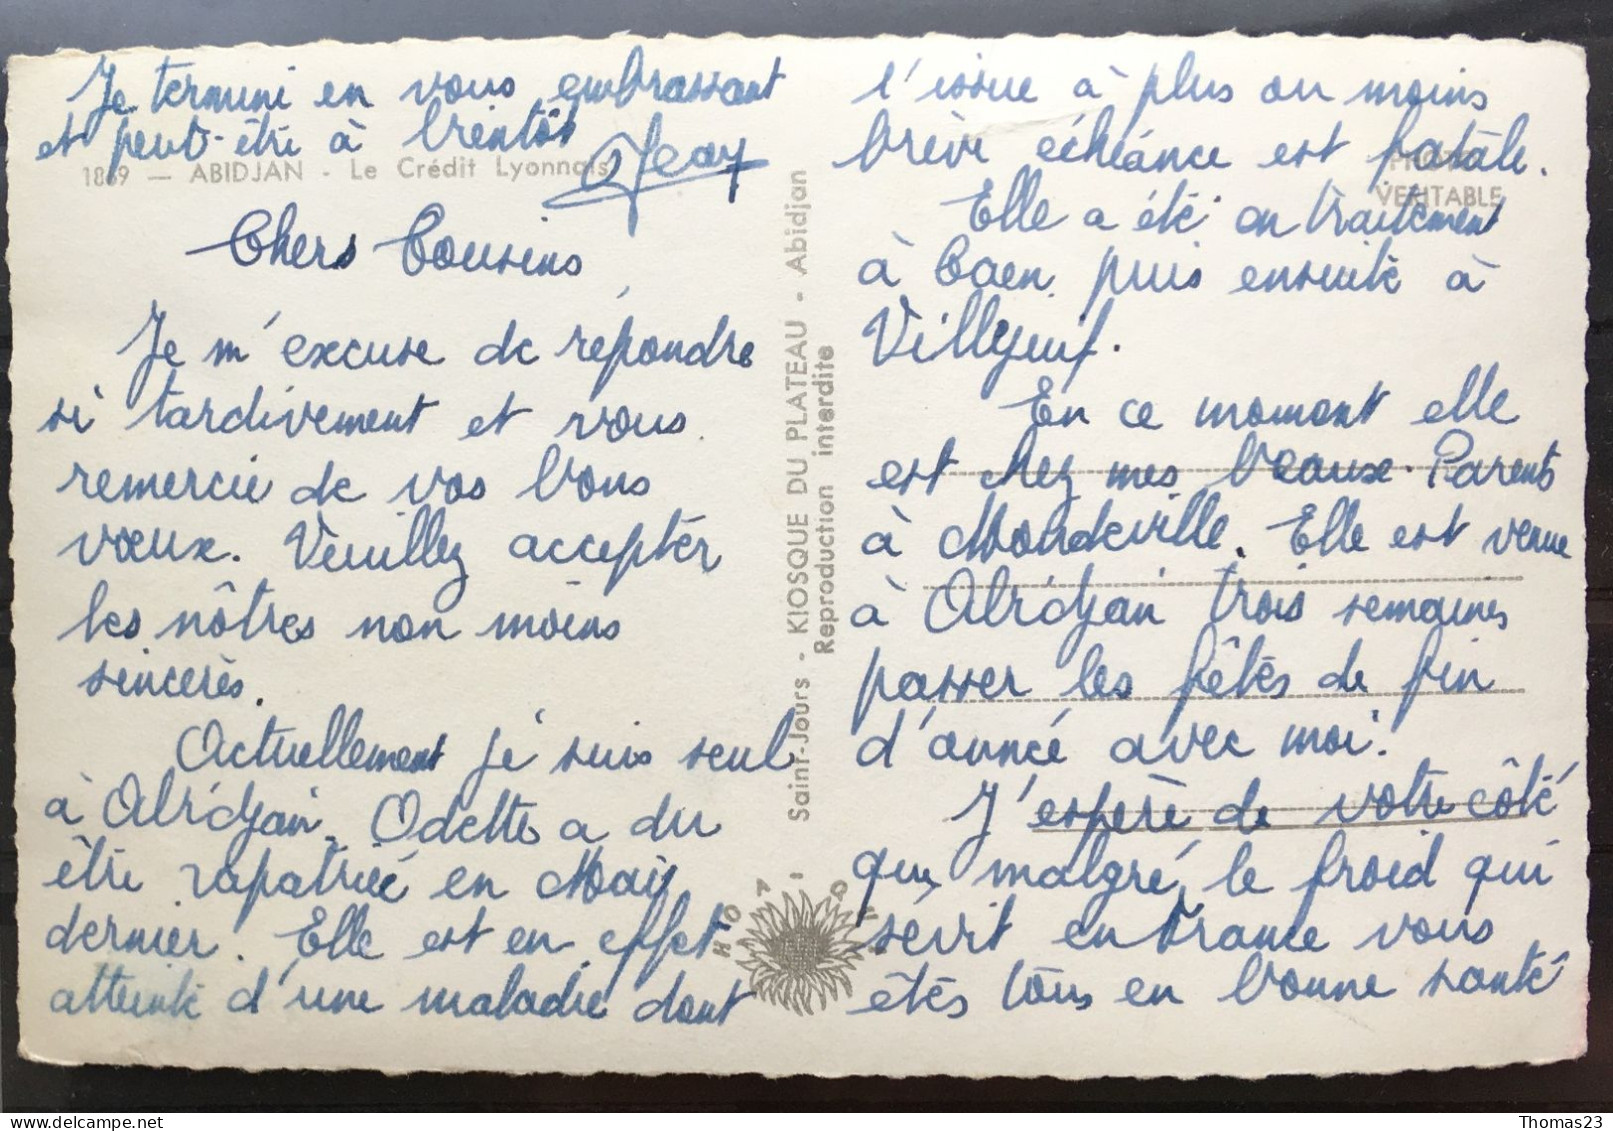 Je termine en vous embrassant
et peut-être à bientôt
Jean
1869 — ABIDJAN - Le Crédit Lyonnais
Chers Cousins,
Je m'excuse de répondre
si tardivement et vous
remercie de vos bons
vœux. Veuillez accepter
les nôtres non moins
sincères.
Actuellement je suis seul
à Abidjan. Odette a du
être rapatriée en Mai
dernier. Elle est en effet
atteinte d'une maladie dont
l'issue à plus ou moins
brève échéance est fatale.
Elle a été en traitement
à Caen puis ensuite à
Villejuif.
En ce moment elle
est chez mes beaux-Parents
à Mondeville. Elle est venue
à Abidjan trois semaines
passer les fêtes de fin
d'année avec moi.
J'espère de votre côté
que malgré le froid qui
sévit en France vous
êtes tous en bonne santé
PHOTO
VÉRITABLE
Saint-Jours - KIOSQUE DU PLATEAU - Abidjan
Reproduction interdite
HOA-QUI
Thomas23